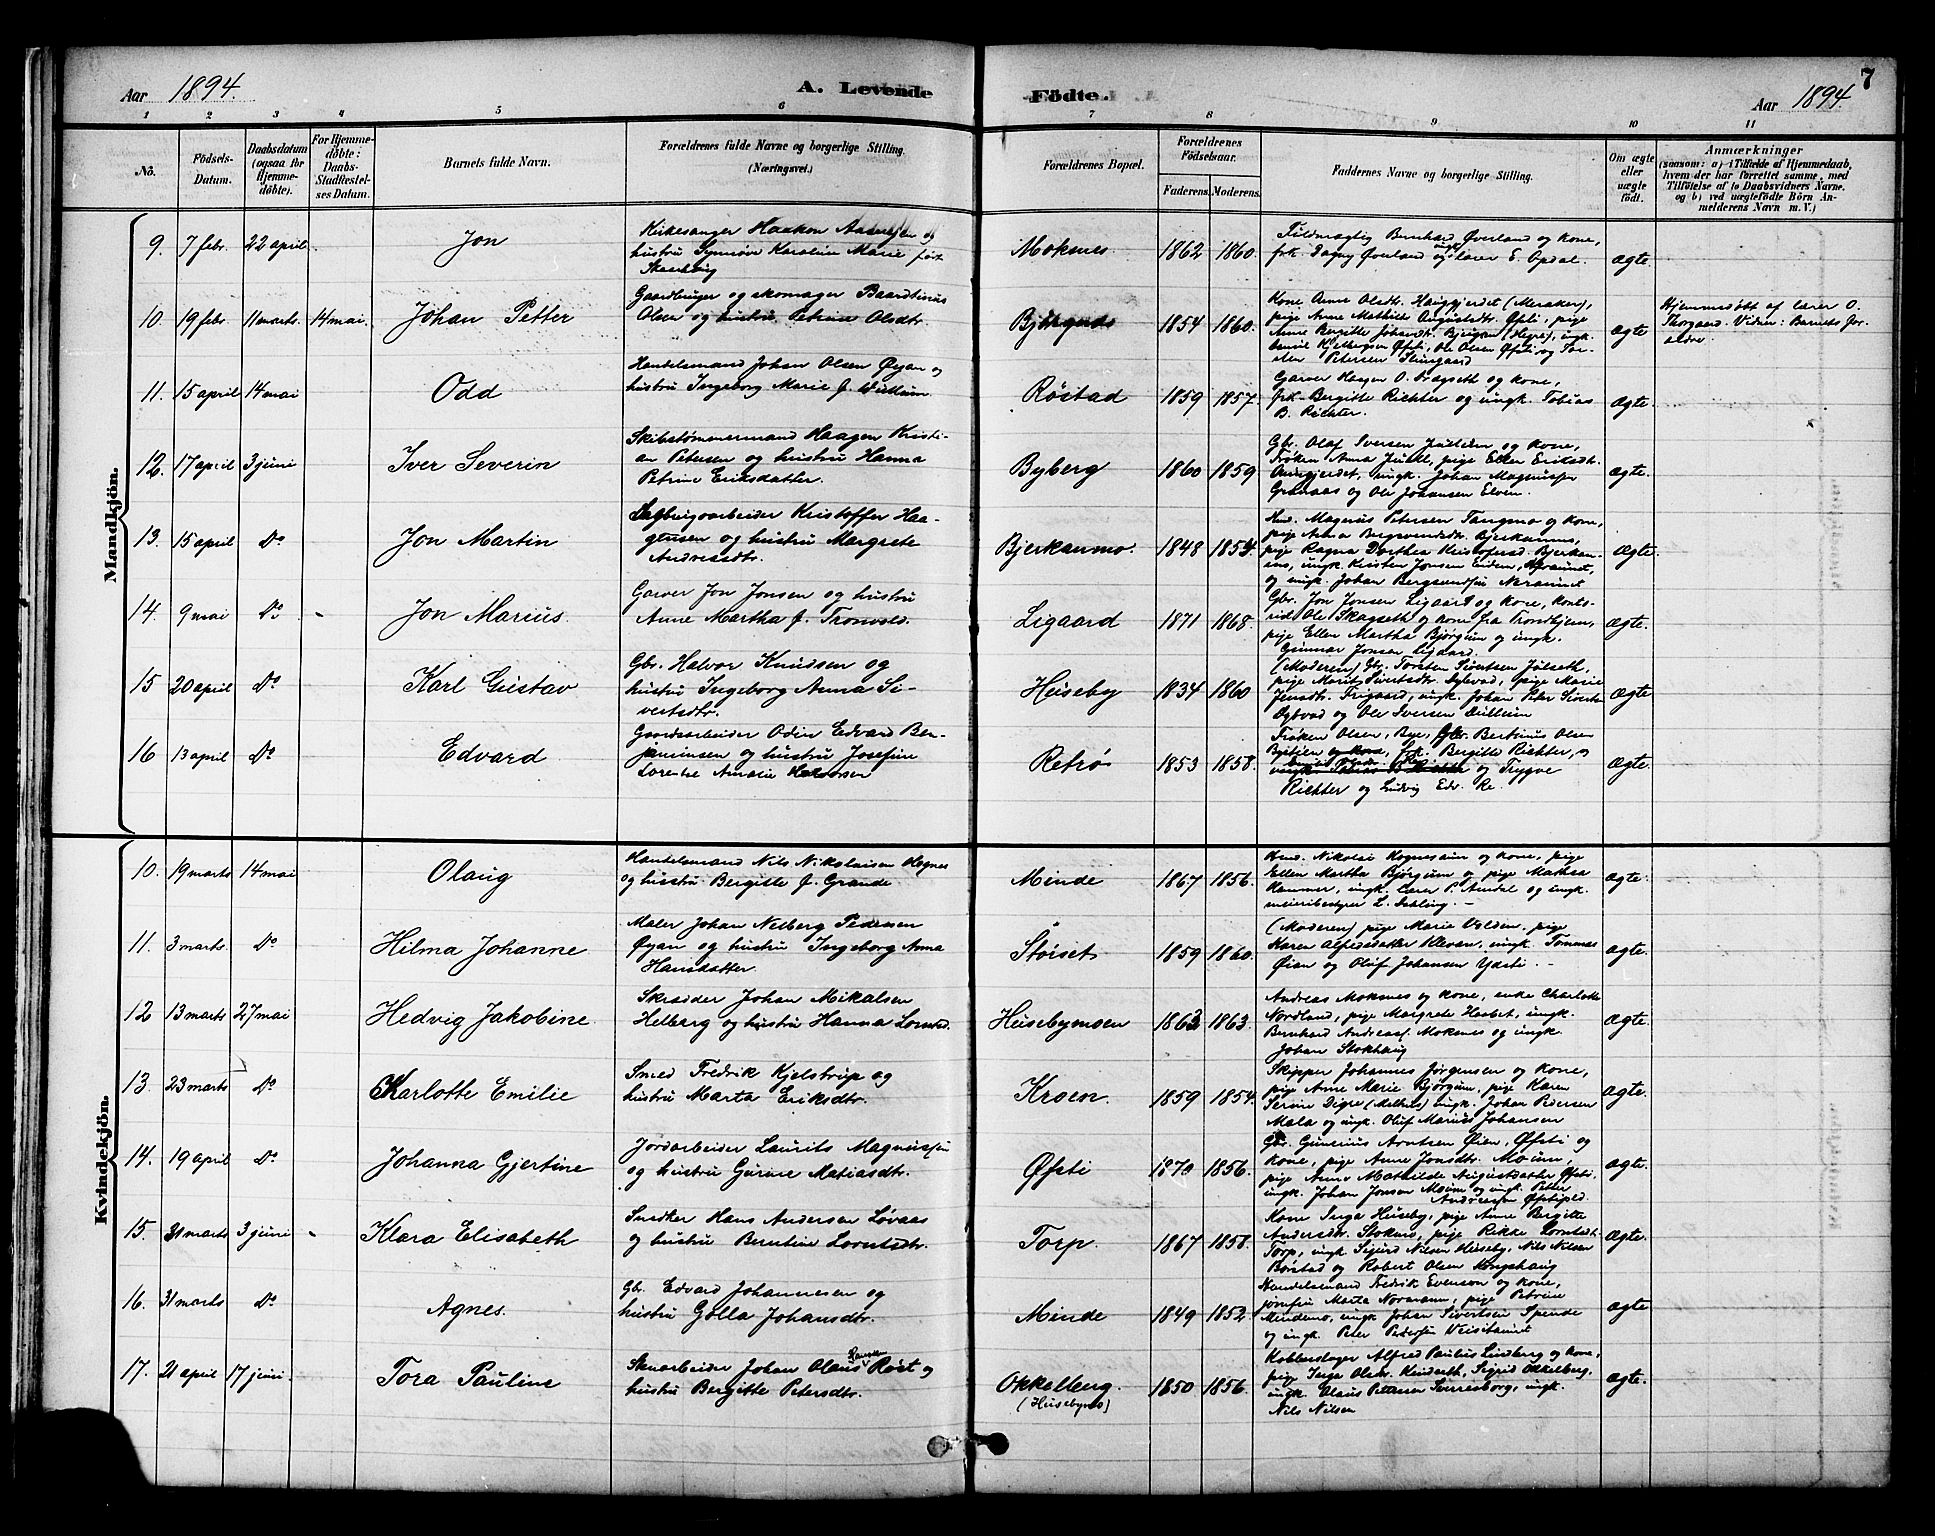 Aar 1894. A. Levende Födte. Aar 1894. 7
1 2 3 4 5 6 7 8 9 10 11
No.
Födsels-
Datum.
Daabsdatum
(ogsaa for
Hjemme-
döbte).
For Hjemme-
döbte:
Daabs-
Stadfæstel-
ses Datum.
Barnets fulde Navn.
Forældrenes fulde Navne og borgerlige Stilling.
(Næringsvei.)
Forældrenes Bopæl.
Forældrenes
Födselsaar.
Faderens. Moderens.
Faddernes Navne og borgerlige Stilling.
Om ægte
eller
uægte
födt.
Anmærkninger
(saasom: a) i Tilfælde af Hjemmedaab,
hvem der har forrettet samme, med
Tilföielse af to Daabsvidners Navne.
og b) ved uægtefödte Börn An-
melderens Navn m. V.)
Mandkjön.
9. 7 febr. 22 april. Jon
Kirkesanger Haakon og
hustru Synnöve Karoline Marie föit
Moknes 1862 1860.
Fuldmægtig Bernhard Øverland og kone,
frk. Dagny Øverland og ungk. lærer E. Opdal.
ægte.
10. 19 febr. 11 marts. 14 mai. Johan Petter
Gaardbruger og skomager Baardtinus
Olsen og hustru Petrine Olsdtr.
1854 1860.
Kone Anne Olsdtr. Hauggjerdet (Meraker),
pige Anne Mathilde Augustsdtr. Øfsti, pige
Anne Bergitte Johansdtr. Bjørgum (Hegre), ungk.
Øfsti, Ole Olsen Øfsti og Tor-
sten Petersen
ægte
Hjemmedøbt af lærer O.
Thorgaard. Vidner: Barnets for-
ældre.
11. 15 april 14 mai Odd
Handelsmand Johan Olsen Øyan og
hustru Ingeborg Marie f.
Røstad 1859 1857.
Garver Haagen O. Kragseth og kone,
frk. Bergitte Richter og ungk. Tobias
B. Richter.
Ægte.
12. 17 april 3 juni Iver Severin
Skibstømmermand Haagen Kristi-
an Petersen og hustru Hanna
Petrine Eriksdatter.
Byberg 1860 1859
Gbr. Olaf Iversen og kone,
Frøken Anna pige Ellen Eriksdtr.
ungk. Johan Magnussen
Granaas og Ole Johansen Elven.
ægte.
13. 15 april Do Jon Martin
Sagbrugsarbeider Kristoffer Haa-
gensen og hustru Margrete
Andreasdtr.
Bjerkanmo. 1848 1854.
Hmd. Magnus Petersen Tangmo og kone,
pige Anna Bergsvendsdtr. Bjerkanmo,
pige Ragna Dorthea Kristoffersd. Bjerkan-
mo, ungk. Kristen Jonsen Eidem,
og ungk. Johan Bergsvendsen
Ægte.
14. 9 mai Do - Jon Marius.
Garver Jon Jonsen og hustru
Anne Martha f. Tronvold.
Ligaard 1871 1868.
Gbr. Jon Jonsen Ligaard og kone,
Ole Skagseth og kone fra Trondhjem,
pige Ellen Martha Bjørgum og ungk.
Gunnar Jonsen Ligaard.
ægte.
15 20 april Do Karl Gustav
Gbr. Halvor Knudsen og
hustru Ingeborg Anna Si-
vertsdtr.
Huseby 1834 1860
(Moderen) Gbr. Torsten Sivertsen Julseth,
pige Marit Sivertsdtr. pige Marie
Jensdtr. Frigaard, ungk. Johan Peter Sivertsen
og Ole Iversen
ægte
16 13 april Do Edvard
Gaardsarbeider Odin Edvard Ben-
jaminsen og hustru Josefine
Lorentse Amalie
Retrø 1853 1858.
Frøken Olsen, Bye, Gbr. Bertinus Olsen
og kone, frk. Bergitte Richter, og
og Trygve
Richter og Ludvig Edv. Re.
Ægte.
Kvindekjön.
10. 19 marts 14 mai Olaug
Handelsmand Nils Nikolaisen Hognes
og hustru Bergitte f. Grande.
Minde 1867 1856.
Hmd. Nikolai og kone, pige
Ellen Martha Bjørgum og pige Mathea
Hammer, ungk. Lærer P. Aundal og ungk.
meieribestyrer L.
ægte.
11. 3 marts. Do Hilma Johanne
Maler Johan Nelberg Pedersen
Øyan og hustru Ingeborg Anna
Hansdatter.
Størset 1859 1860.
(Moderen) pige Marie Volden, pige
Karen Alfredsdatter Kleven, ungk. Tommas
Øien og Oluf Johansen Ydsti. -
ægte.
12 13 marts 27 mai Hedvig Jakobine.
Skrædder Johan Mikalsen
Helberg og hustru Hanna Lorntsd.
Husebymoen 1862 1863.
Andreas Moksnes og kone, enke Charlotte
Nordland, pige Margrete ungk.
Bernhard Andreass. Moksnes og ungk.
Johan Stokhaug
ægte.
13. 23 marts Do Karlotte Emilie
Smed Fredrik Kjelstrup og
hustru Marta Eriksdtr.
Kroen. 1859 1854.
Skipper Johannes Jørgensen og kone,
pige Anne Marie Bjørgum, pige Karen
Serine Digre (Melhus) ungk. Johan Pedersen
Mala og ungk. Oluf Marius Johansen
ægte.
14. 19 april Do Johanna Gjertine
Jordarbeider Laurits Magnussen
og hustru Gurine Matiasdtr.
Øfsti 1870 1856.
Gbr. Gunerius Arntsen Øien, Øfsti og
kone, pige Anne Jonsdtr. Moum,
pige Anne Mathilde Augustsdatter Øfsti,
ungk. Johan Jonsen Moum og ungk. Petter
Andreassen
ægte.
15. 31 marts 3 juni - Klara Elisabeth
Snedker Hans Andersen Løvaas
og hustru Berntine Lorntsdtr.
Torp. 1867 1858.
Kone Inga Huseby, pige Anne Bergitte
Andersdtr. Stoknes, pige Rikke Lorntsdtr.
Torp, ungk. Sigurd Nilsen Huseby, Nils Nilsen
Børstad og Robert Olsen Kongshaug
ægte.
16. 31 marts Do Agnes.
Gbr. Edvard Johannesen og
hustru Golla Johansdtr.
Minde 1849 1852.
Handelsmand Fredrik Evenson og kone,
Marta Normann, pige Petrine
Mindemo, ungk. Johan Sivertsen Spende
og ungk. Peter Pedersen
ægte
17. 21 april 17 juni. Tora Pauline
Skoarbeider Johan Olaus Larsen Røst og
hustru Bergitte Petersdtr.
Okkelberg.
(Husebynes)
1850 1856.
Kobberslager Alfred Paulus Lindberg og kone,
pige Inga Olsdtr. Kindseth, Sigrid Okkelberg,
ungk. Olaus Petersen Sverresborg, ungk.
Nils Nilsen
ægte.